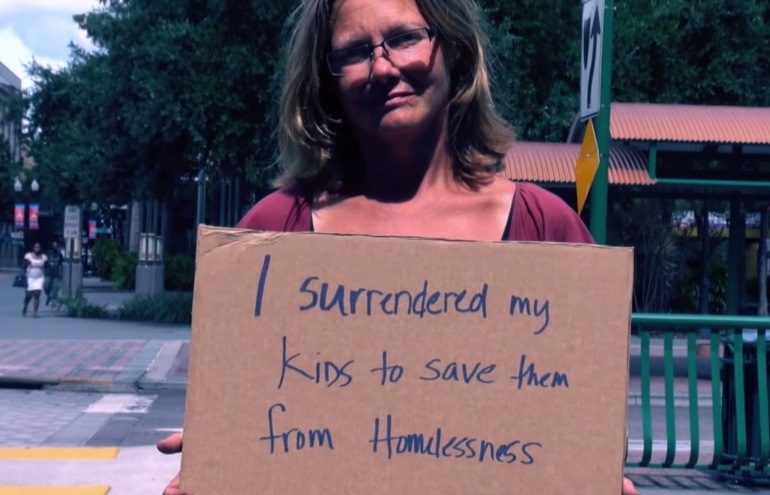 I surrendered my
Kids to save them
from Homelessness